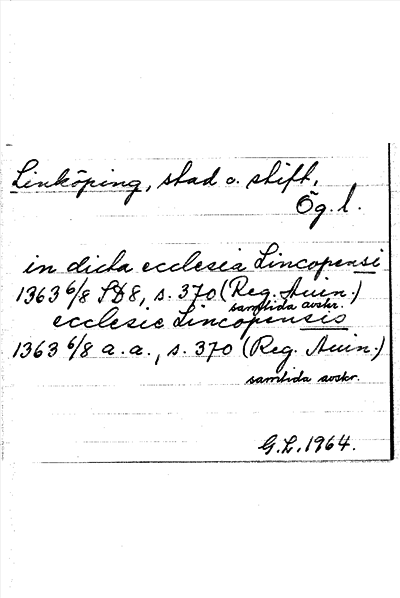 Linköping, stad o. stift,
Ög. l.
in dicta ecclesia Lincopensi
1363 6/8 SD 8, s. 370 (Reg. Auin.)
samtida avskr.
ecclesie Lincopensis
1363 6/8 a. a., s. 370 (Reg. Auin.)
samtida avskr.
G. L. 1964.